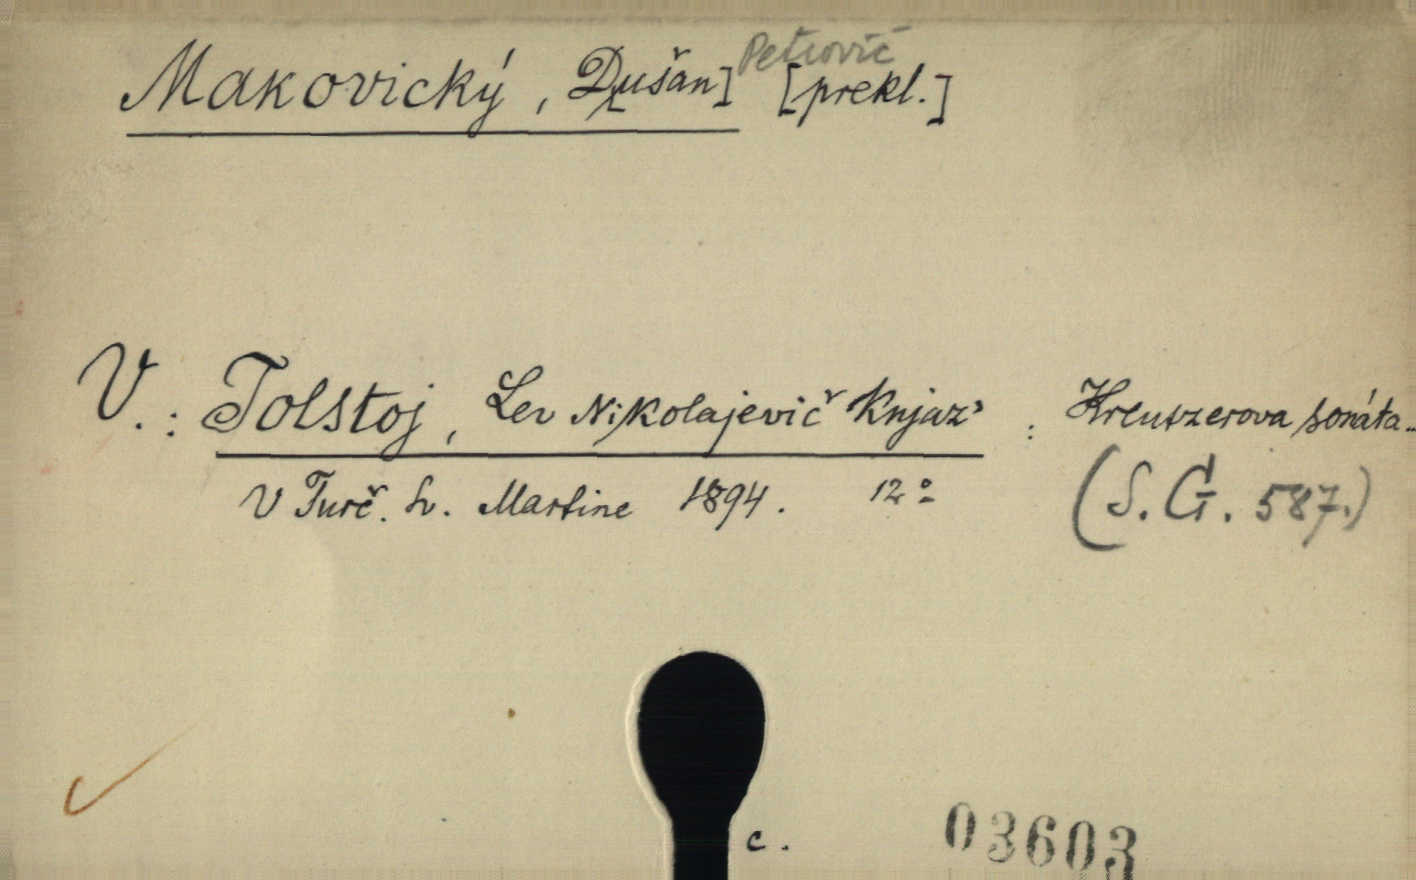 Makovický, D[ušan] Petrovič [prekl.]
V.: Tolstoj, Lev Nikolajevič Knjaz' : Kreutzerova sonáta..
V Turč. Sv. Martine 1894. 12°
(S. G. 587.)
c.
03603